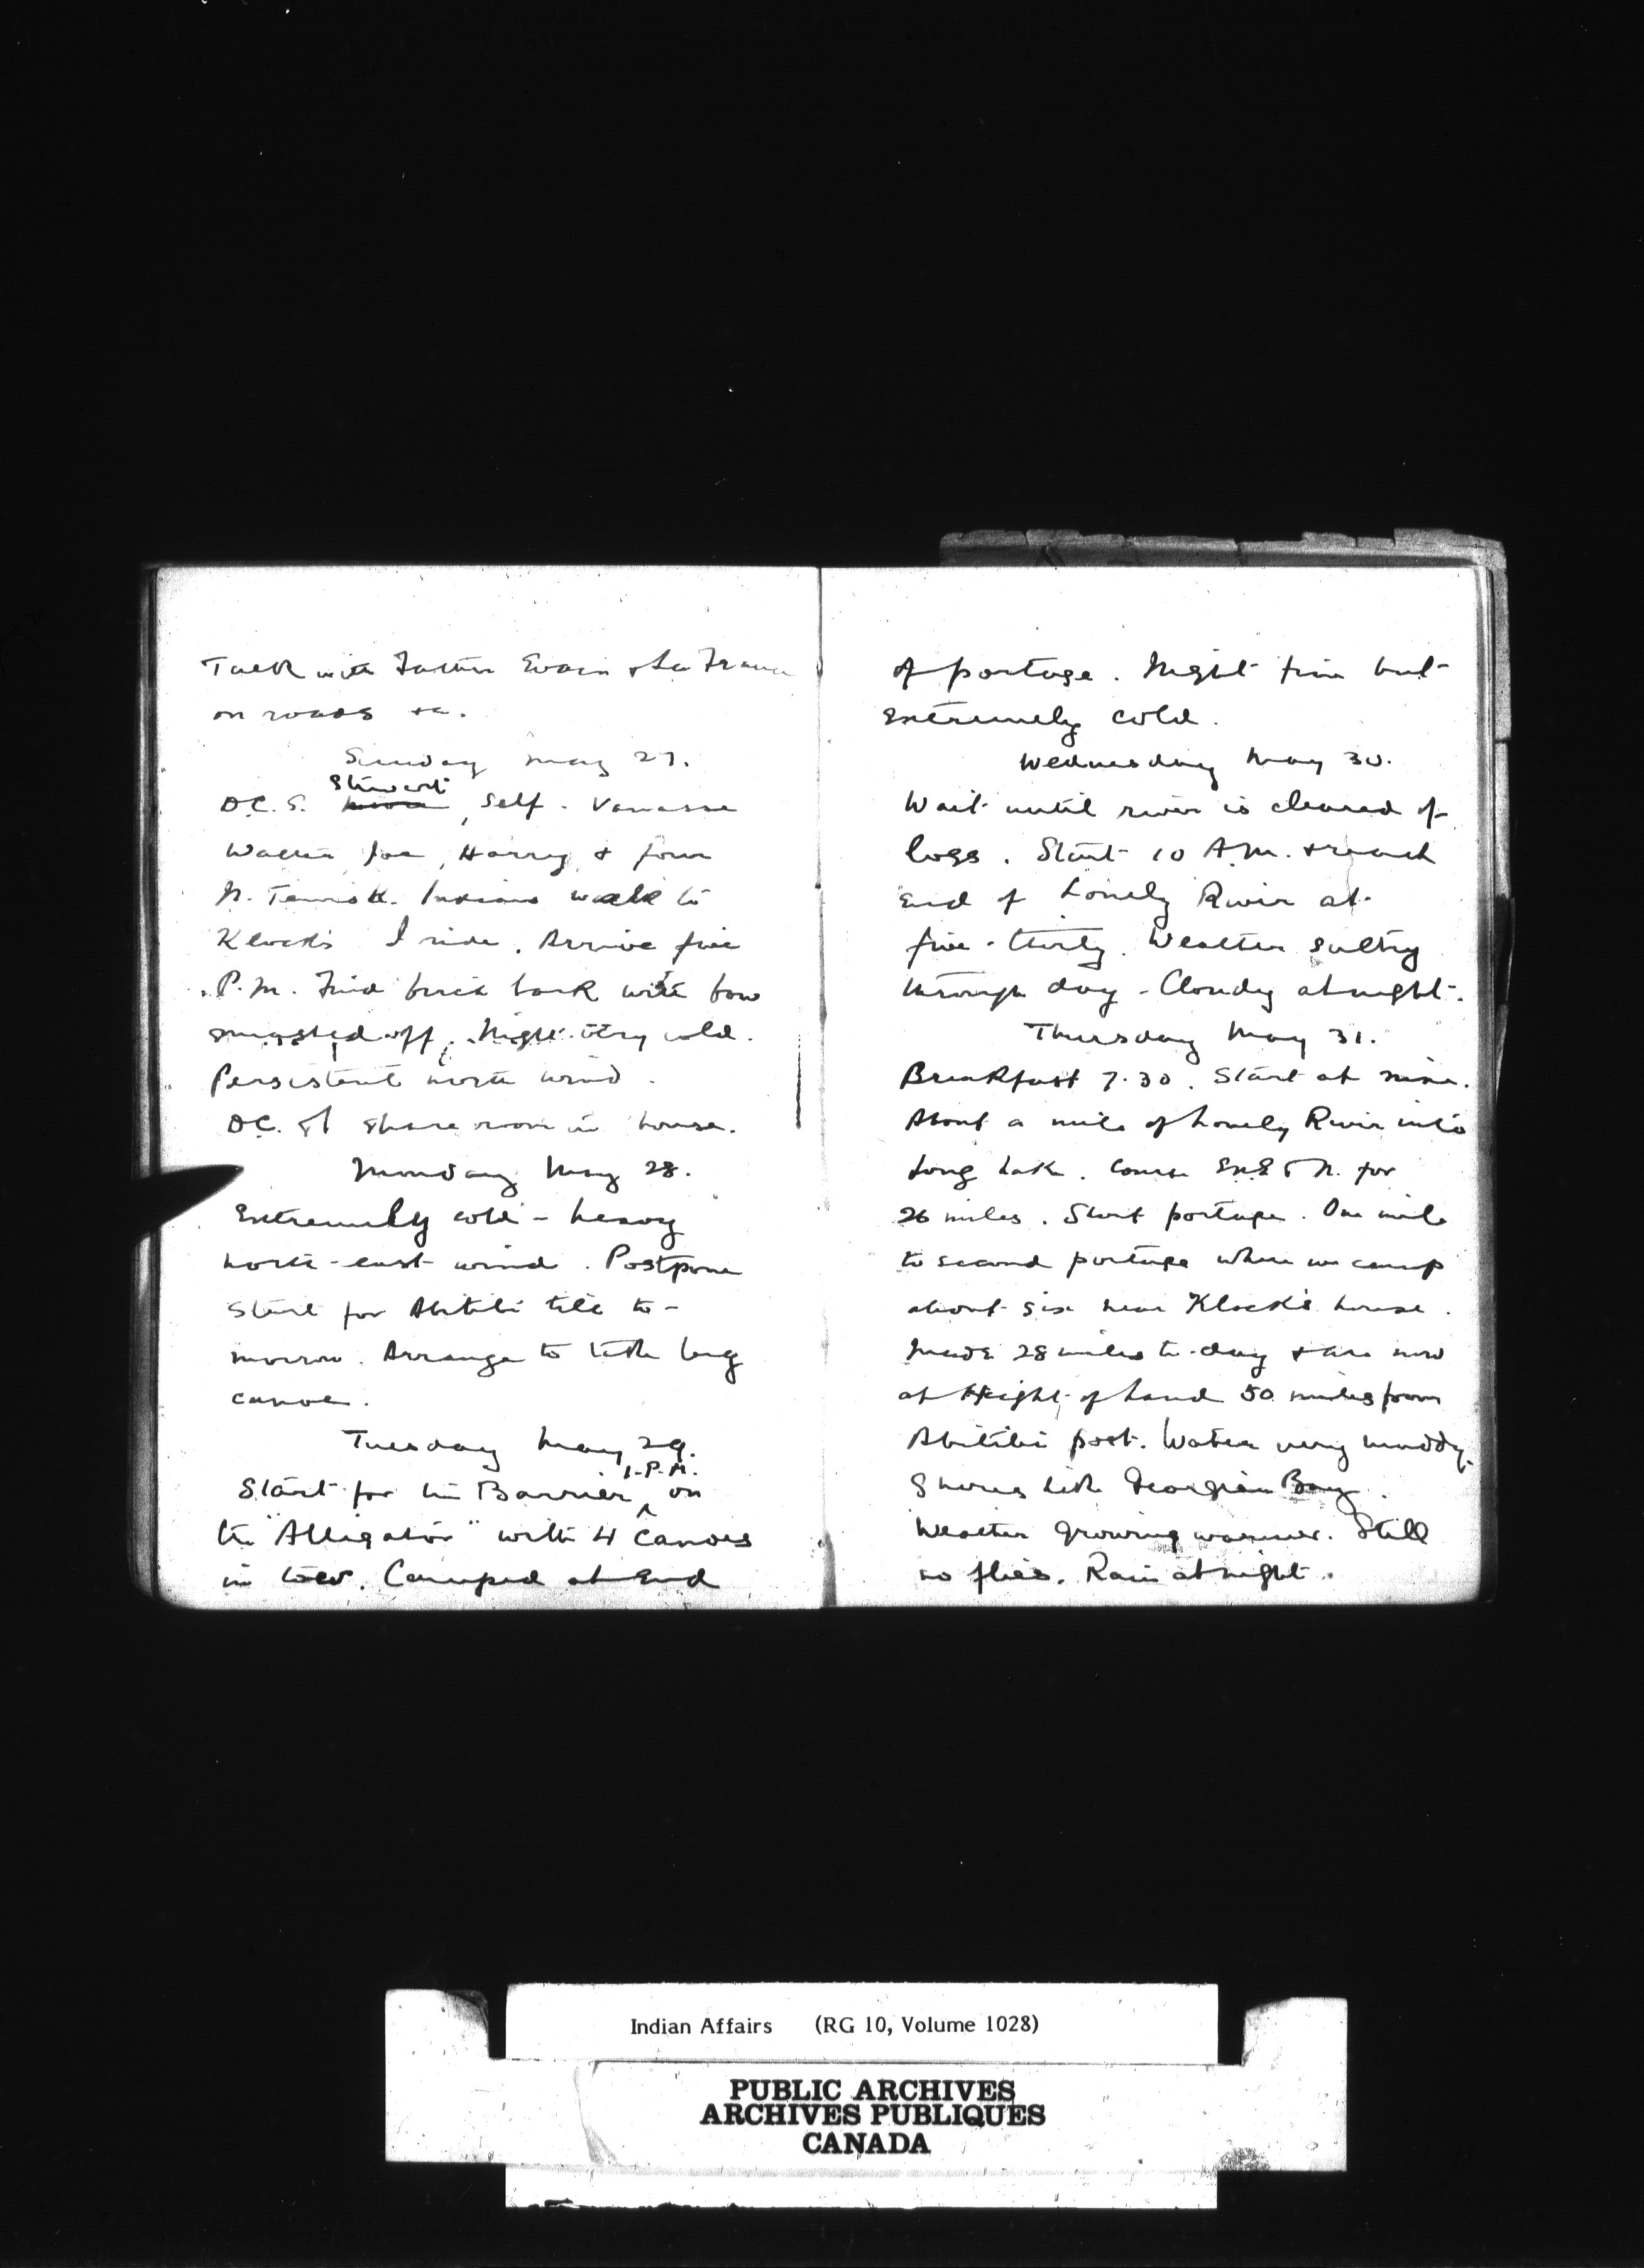 Talk with Father Evain & La France
on roads &c.
Sunday May 27.
Stewart
D.C.S. , Self - Vanasse
Walter, Joe, Harry, & four
N. Temisk. Indians walk to
Klock's I ride. Arrive five
P.M. Find birch bark with bow
smashed off. Night very cold.
Persistent north wind.
DC. & I share room in house.
Monday May 28.
Extremely cold - heavy
north-east wind. Postpone
start for Abitibi till to-
morrow. Arrange to take big
canoe.
Tuesday May 29.
1.P.M.
Start for the Barrier ^ on
the "Alligator" with 4 canoes
in tow. Camped at end
of portage. Night fine but
extremely cold.
Wednesday May 30.
Wait until river is cleared of
logs. Start 10 A.M. & reach
end of Lonely River at
five-thirty. Weather sultry
through day - Cloudy at night.
Thursday May 31.
Breakfast 7.30. Start at nine.
About a mile of Lonely River into
Long Lake. Course N. for
26 miles. Short portage. One mile
to second portage where we camp
about six near Klock's house.
Made 28 miles to-day & are now
at Height of Land 50 miles from
Abitibi post. Water very muddy.
Shores like Georgian Bay.
Weather growing warmer. Still
no flies. Rain at night.
Indian Affairs (RG 10, Volume 1028)
PUBLIC ARCHIVES
ARCHIVES PUBLIQUES
CANADA